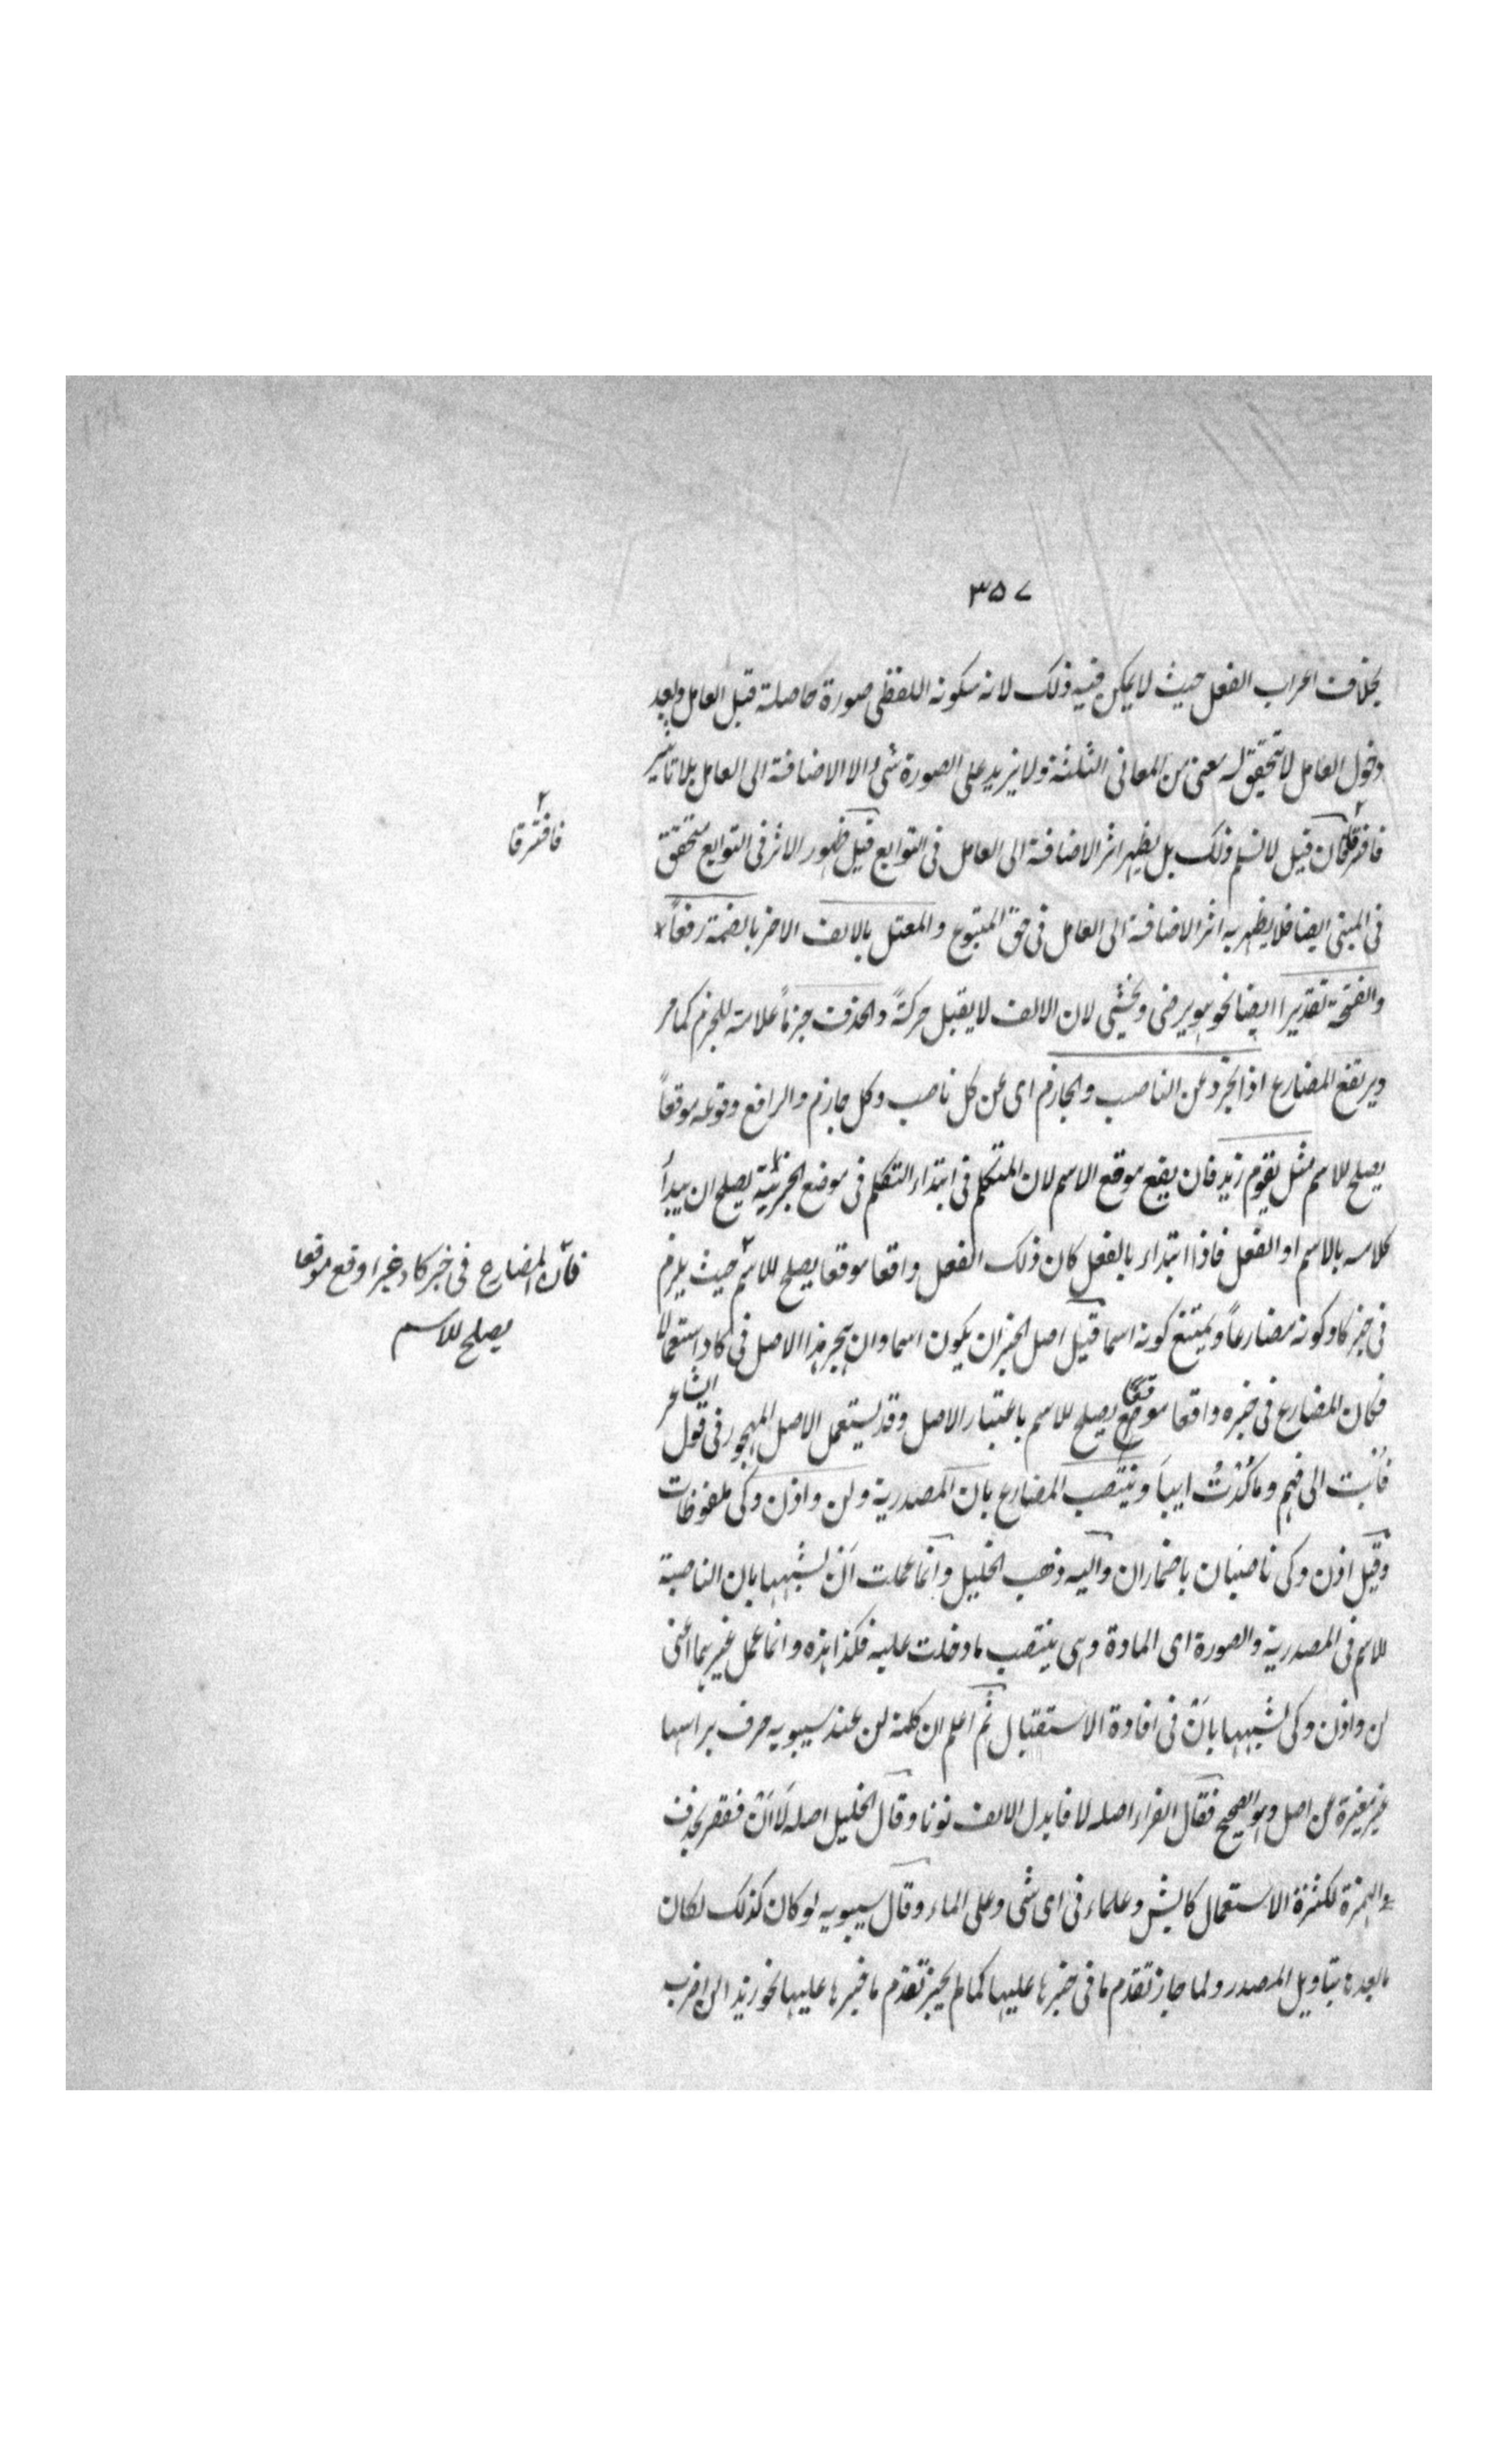 ٣٥٧
بخلاف اعراب الفعل حيث لا يمكن فيه ذلك لانه سكونه اللفظى صورة حاصلة قبل العامل وبعد
دخول العامل لا تتحقق له معنى من المعانى الثلثة ولا يزيد على الصورة شئ الا الاضافة الى العامل بلا تاثير
فافترقا فان قيل لا نسلم ذلك بل يظهر اثر الاضافة الى العامل فى التوابع قيل ظهور الاثر فى التوابع متحقق
فى المبنى ايضا فلا يظهر به اثر الاضافة الى العامل فى حق المتبوع والمعتل بالالف الاخر بالضمة رفعاً
والفتحة تقديرا ايضا نحو هو يرضى ويخشى لان الالف لا يقبل حركةً والحذف جزماً علامة للجزم كما مر
ويرتفع المضارع اذا تجرد عن الناصب والجازم اى عن كل ناصب وكل جازم والرافع وقوعه موقعاً
يصلح للاسم مثل يقوم زيد فان يقع موقع الاسم لان المتكلم فى ابتداء التكلم فى موضع الخبرية يصلح ان يبدأ
كلامه بالاسم او الفعل فاذا ابتداء بالفعل كان ذلك الفعل واقعا موقعا يصلح للاسم حيث يلزم
فى خبر كاد كونه مضارعاً ويمتنع كونه اسما قيل اصل الخبر ان يكون اسما وان هجر هذا الاصل فى كاد استعمالا
فكان المضارع فى خبره واقعا موقعا يصلح للاسم باعتبار الاصل وقد يستعمل الاصل المهجور فى قول الشاعر
فَاُبت الى فهم وما كُدْتُ ايباً وينتصب المضارع بان المصدرية ولن واذن وكى ملفوظات
وقيل اذن وكى ناصبان باضمار ان واليه ذهب الخليل وانما عملت اَنْ لشبهها بان الناصبة
للاسم فى المصدرية والصورة اى المادة وهى ينتصب ما دخلت عليه فكذا هذه وانما عمل غيرهما اعنى
لن واذن وكى لشبهها باَنْ فى افادة الاستقبال ثم اعلم ان كلمة لن عند سيبويه حرف براسها
غير مغيرة عن اصل وهو الصحيح فقال الفراء اصله لا فابدل الالف نونا وقال الخليل اصله لَا اَنْ فقصر بحذف
الهمزة لكثرة الاستعمال كايش وعلماء فى اى شئ وعلى الماء وقال سيبويه لو كان كذلك لكان
ما بعده بتاويل المصدر ولما جاز تقدم ما فى خبرها عليها كما لم يجز تقدم ما خبرها عليها نحو زيد الن اضرب
فافترقا
فان المضارع فى خبر كاد غير اوقع موقعا
يصلح للاسم